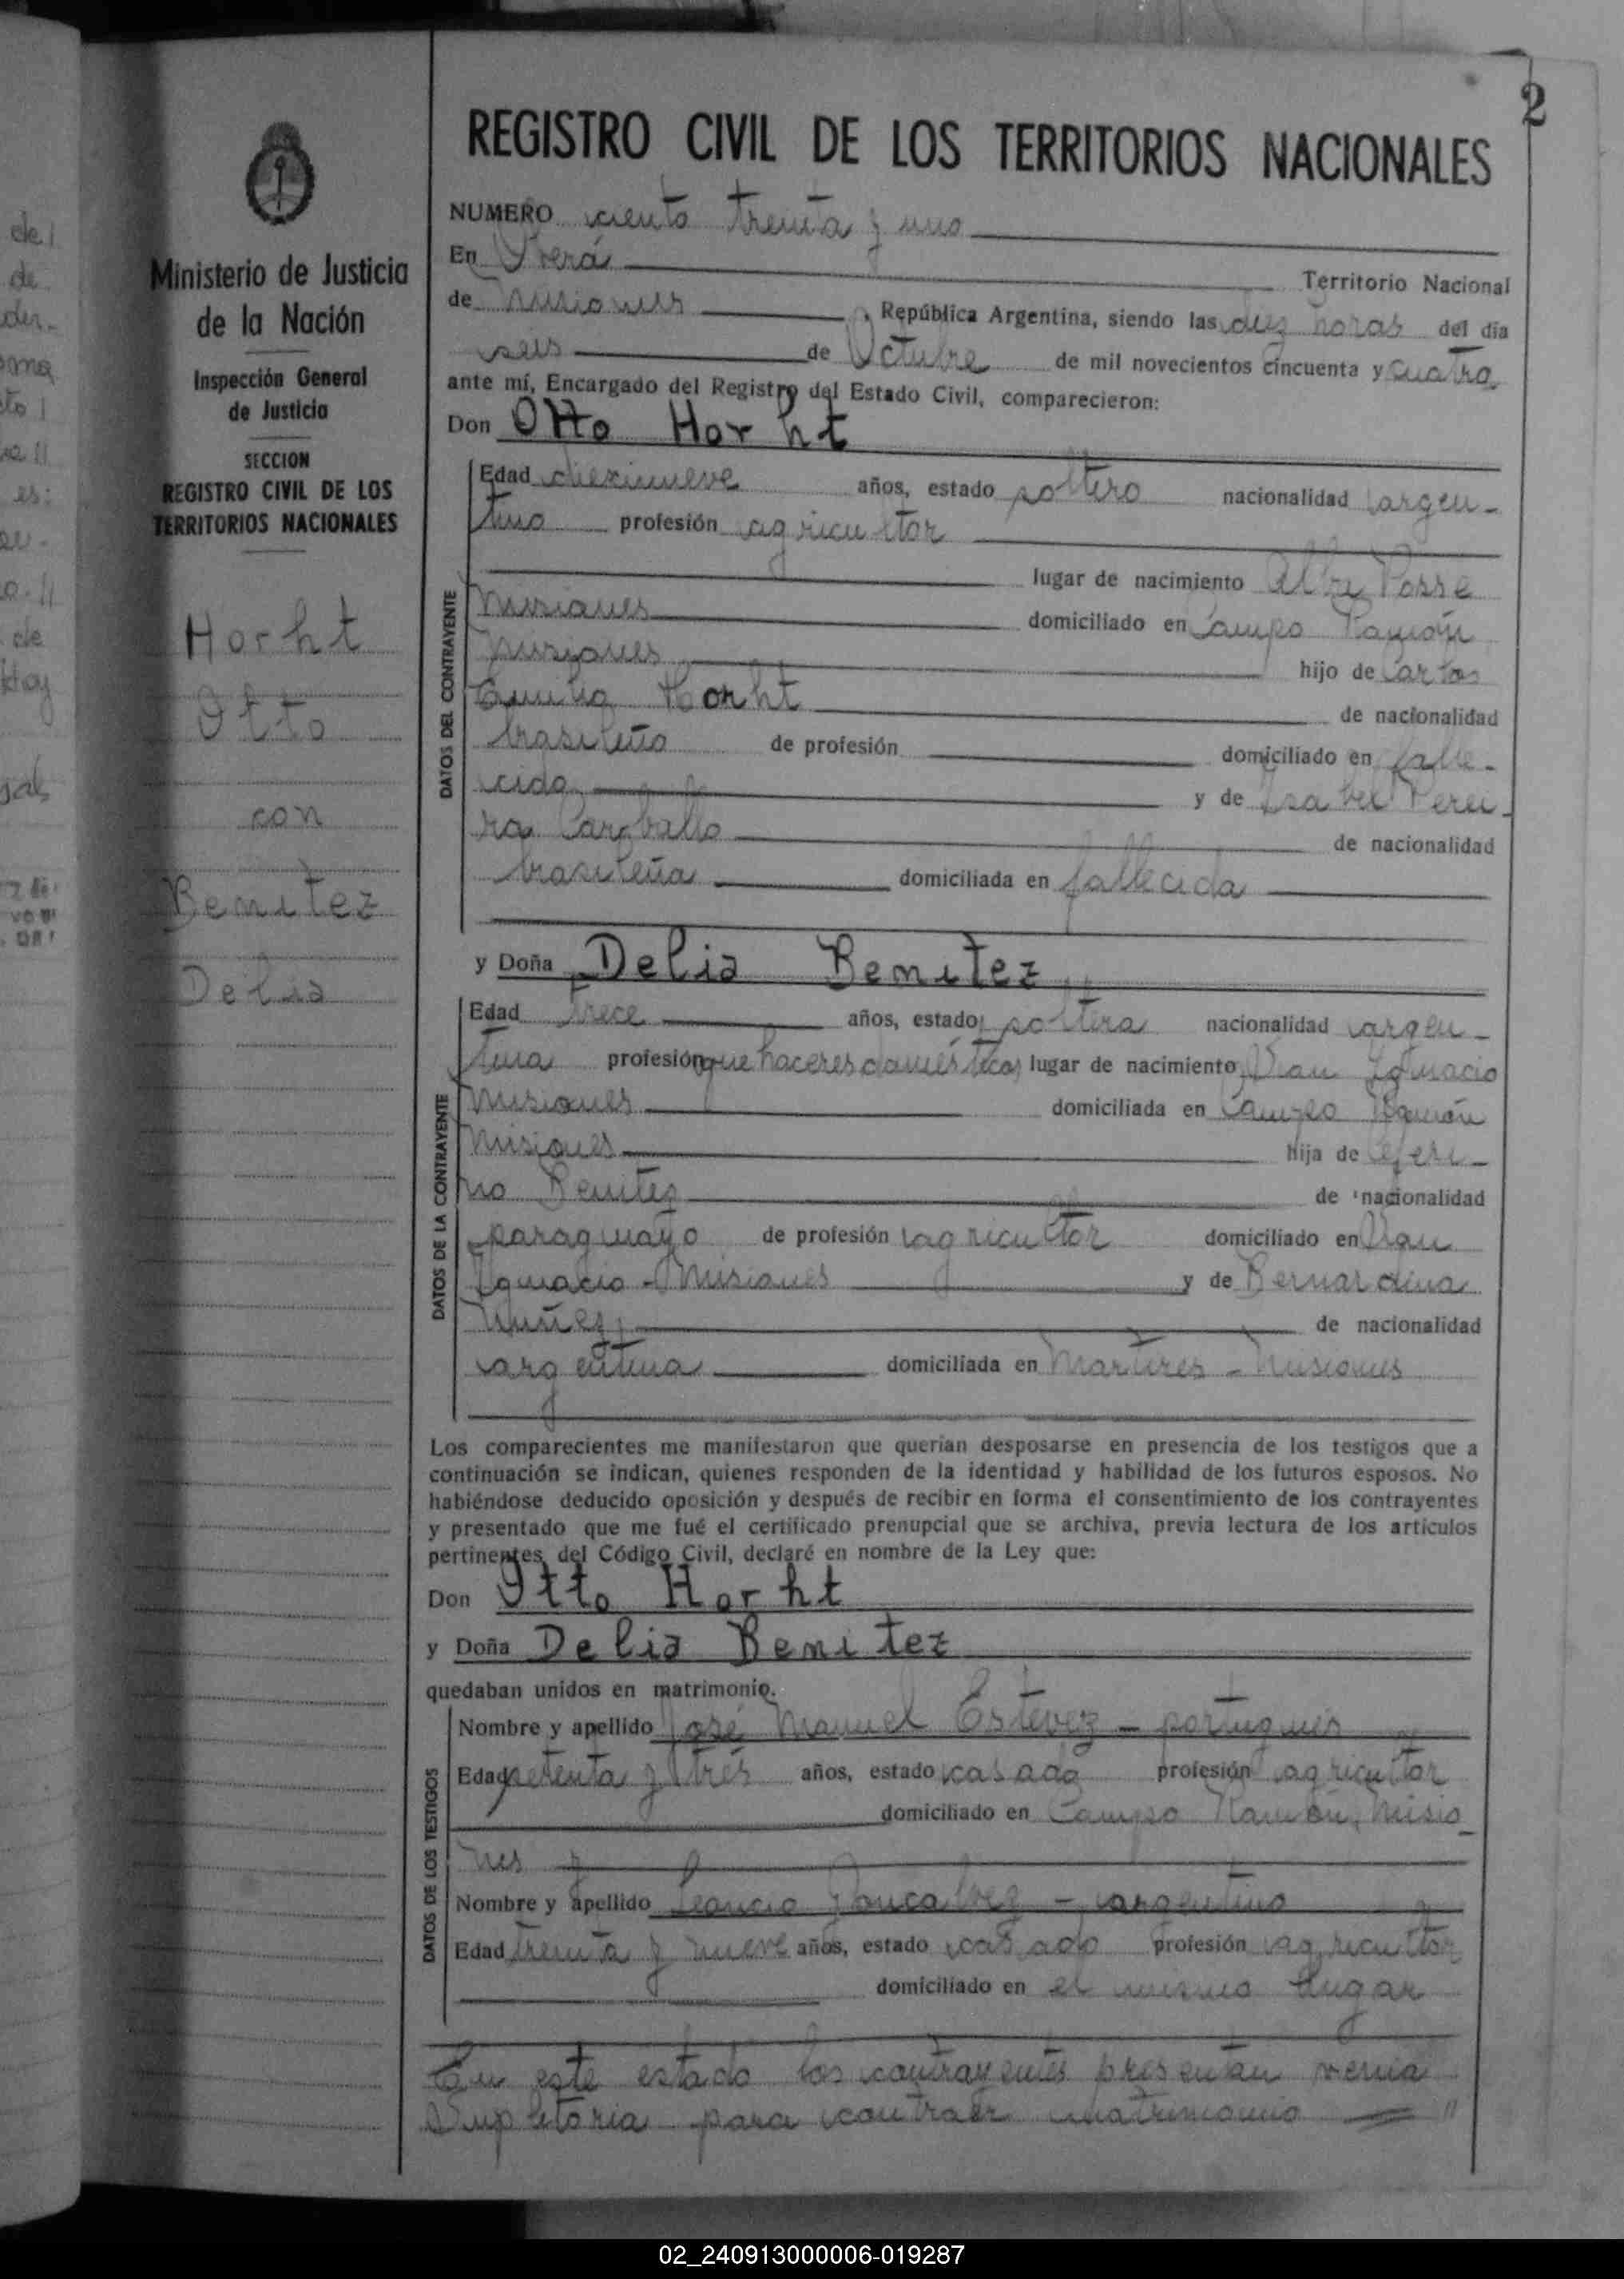 2
REGISTRO CIVIL DE LOS TERRITORIOS NACIONALES
Ministerio de Justicia
de la Nación
Inspección General
de Justicia
SECCION
REGISTRO CIVIL DE LOS
TERRITORIOS NACIONALES
Horht
Otto
con
Benitez
Delia
NUMERO ciento treinta y uno
En Oberá Territorio Nacional
de Misiones, República Argentina, siendo las diez horas del día
seis de Octubre de mil novecientos cincuenta y cuatro
ante mí, Encargado del Registro del Estado Civil, comparecieron:
Don Otto Horht
DATOS DEL CONTRAYENTE
Edad diecinueve años, estado soltero nacionalidad argen-
tino profesión agricultor
lugar de nacimiento Alba Posse
Misiones domiciliado en Campo Ramón
Misiones hijo de Carlos
Horht de nacionalidad
brasileño de profesión domiciliado en falle-
cido y de Isabel Perei-
ra Carballo de nacionalidad
brasileña domiciliada en fallecida
y Doña Delia Benitez
DATOS DE LA CONTRAYENTE
Edad trece años, estado soltera nacionalidad argen-
tina profesión que haceres domésticos lugar de nacimiento San Ignacio
Misiones domiciliada en Campo Ramón
Misiones hija de Ceferi-
no Benitez de nacionalidad
paraguayo de profesión agricultor domiciliado en San
Ignacio - Misiones y de Bernardina
Nuñez de nacionalidad
argentina domiciliada en Martires - Misiones
Los comparecientes me manifestaron que querían desposarse en presencia de los testigos que a
continuación se indican, quienes responden de la identidad y habilidad de los futuros esposos. No
habiéndose deducido oposición y después de recibir en forma el consentimiento de los contrayentes
y presentado que me fué el certificado prenupcial que se archiva, previa lectura de los artículos
pertinentes del Código Civil, declaré en nombre de la Ley que:
Don Otto Horht
y Doña Delia Benitez
quedaban unidos en matrimonio.
DATOS DE LOS TESTIGOS
Nombre y apellido José Manuel Estevez - portugués
Edad setenta y tres años, estado casado profesión agricultor
domiciliado en Campo Ramón, Misio-
nes y
Nombre y apellido Leoncio Goncalvez - argentino
Edad treinta y nueve años, estado casado profesión agricultor
domiciliado en el mismo lugar
En este estado los contrayentes presentan venia
supletoria para contraer matrimonio
02_240913000006-019287